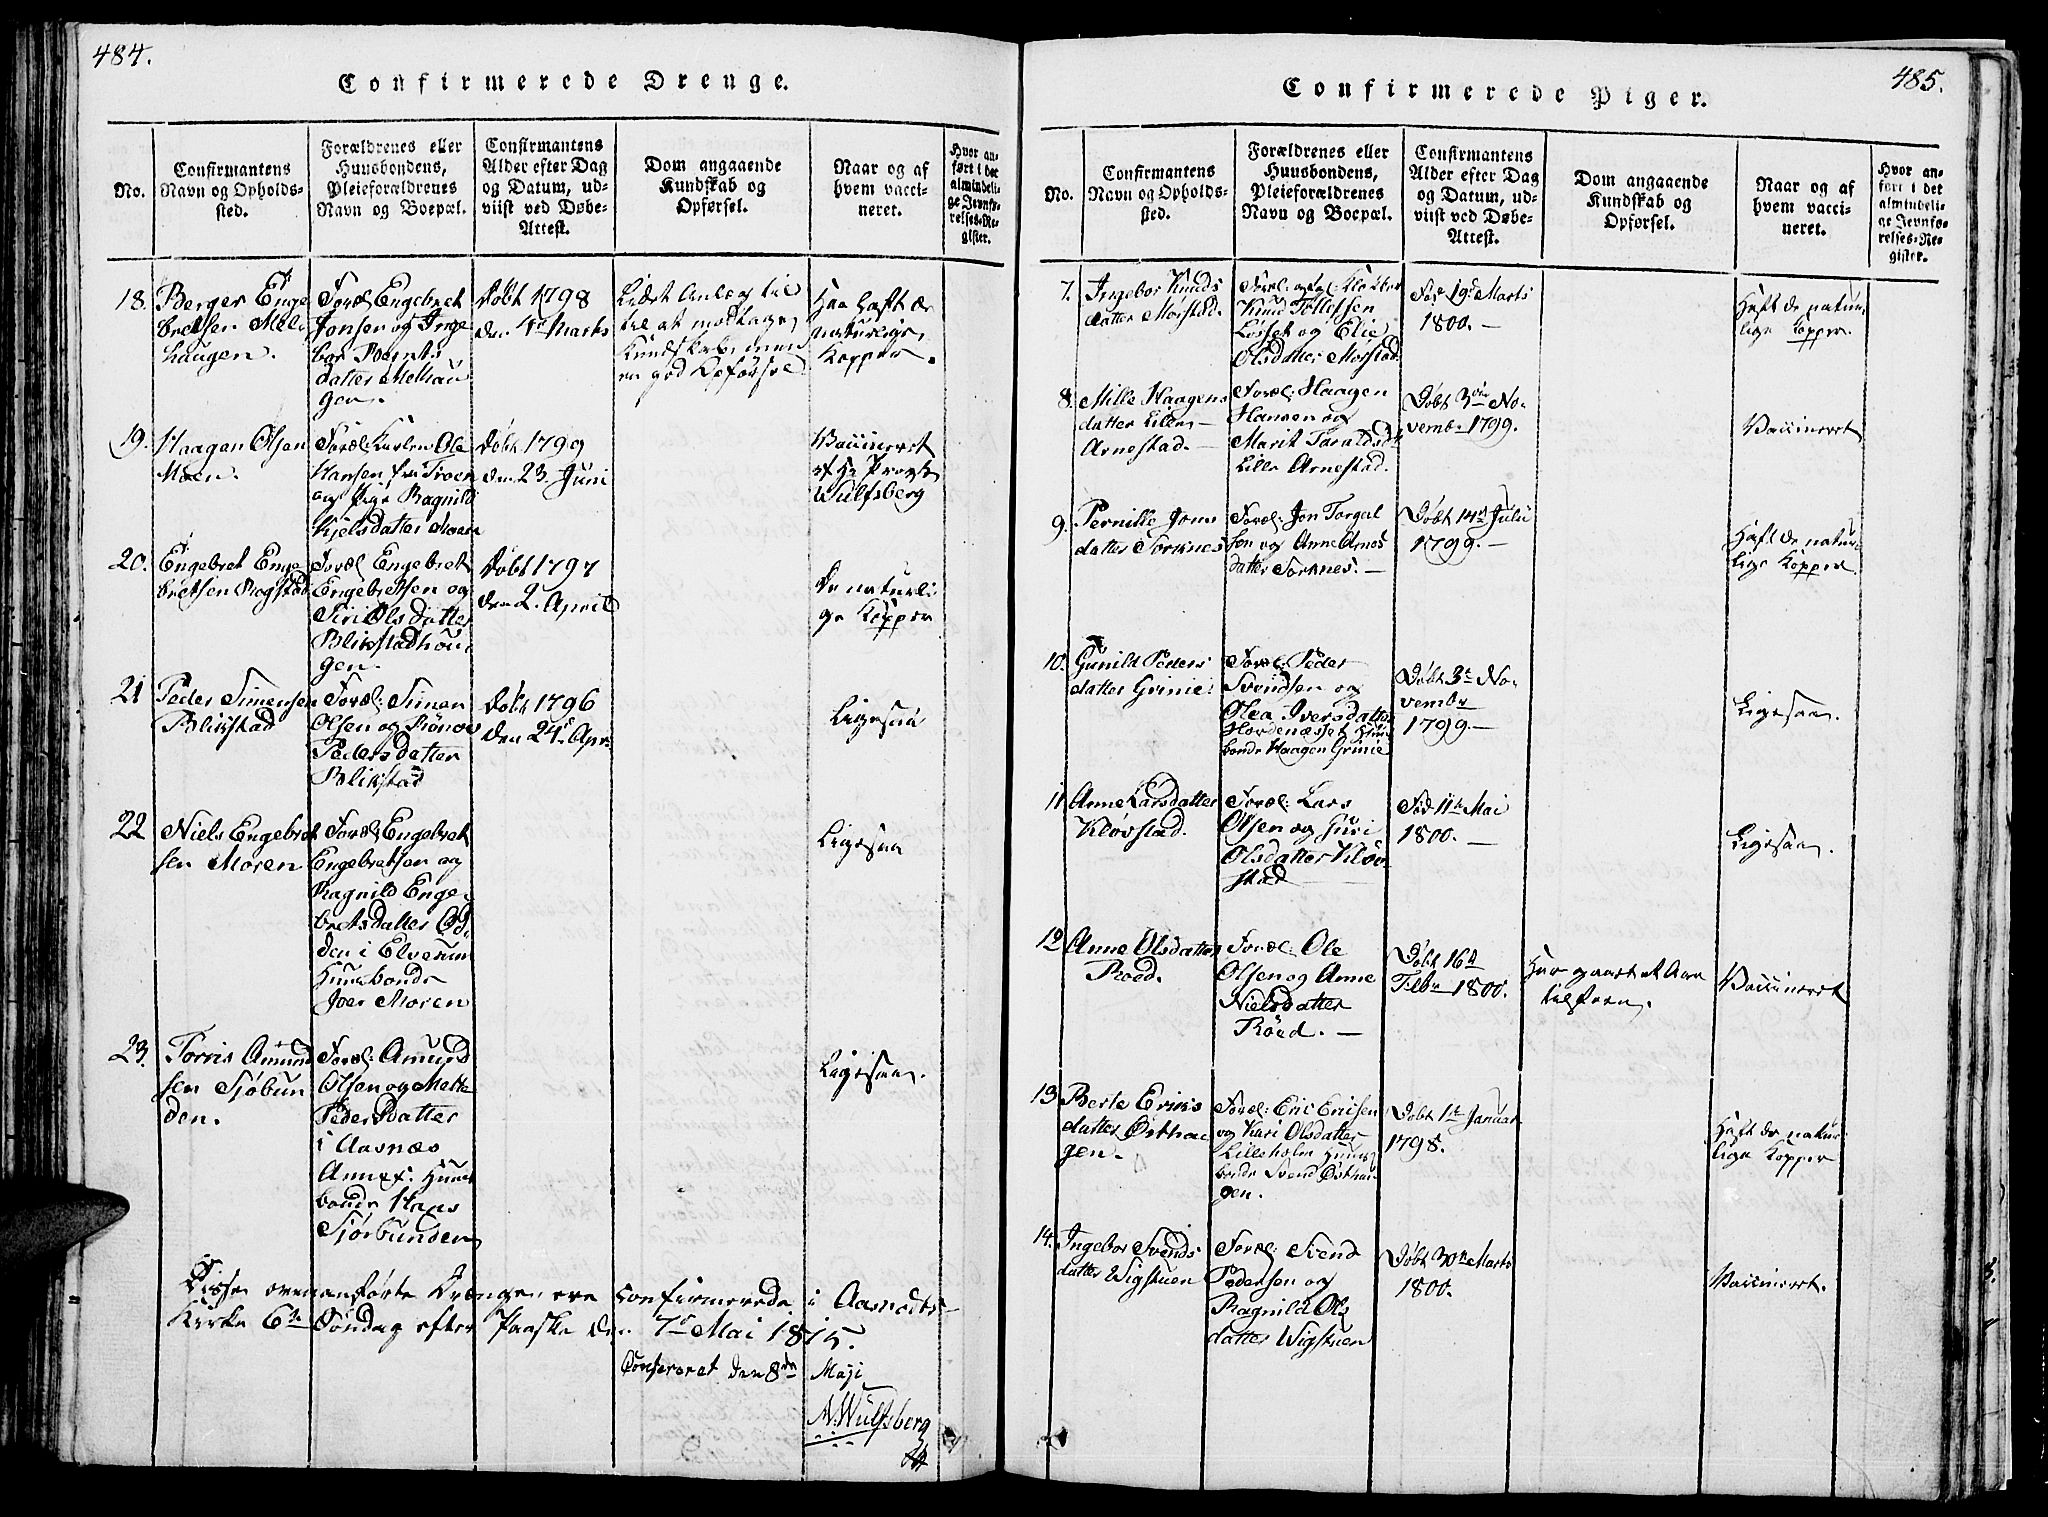 484.
Confirmerede Drenge.
No.
Confirmantens
Navn og Opholds-
sted.
Forældrenes eller
Huusbondens,
Pleieforældrenes
Navn og Boepæl.
Confirmantens
Alder efter Dag
og Datum, ud-
viist ved Døbe-
Attest.
Dom angaaende
Kundskab og
Opførsel.
Naar og af
hvem vacci-
neret.
Hvor an-
ført i det
almindeli-
ge Jevnfø-
relses-Re-
gister.
18.
Berger Enge
bretsen Mele
haugen.
Foræl: Engebret
Jonsen og Inge
bor Berents
datter Melhau
gen.
Døbt 1798
den 4de Marts
Lidet Anlæg til
til at modtage
Kundskab, men
en god Opførsel
Haa haft de
naturlige
Kopper.
19.
Haagen Olsen
Moen.
Foræl: Karlen Ole
Hansen fra Troen
og Pige Ragnild
Kjelsdatter Moen
Døbt 1799
den 23. Juni
Vaccineret
af Hr Provst
Wulfsberg
20.
Engebret Enge
bretsen Rogstad
Foræl: Engebret
Engebretsen og
Siri Olsdatter
Blikstadhou
gen.
Døbt 1797
den 2. April
De naturli
ge Kopper
21
Peder Simensen
Blikstad
Foræl: Simen
Olsen og Rønov
Pedersdatter
Blikstad
Døbt 1796
den 24de Apr.
Ligesaa
22
Niels Engebret
sen Moren
Foræl: Engebret
Engebretsen og
Ragnild Enge
bretsdatter Od
den i Elverum
Huusbonde
Joer Moren
Ligesaa
23.
Torris Amund
sen Sjøbun
den.
Foræl: Amund
Olsen og Mette
Pedersdatter
i Aasnæs
Annex: Huus
bonde Hans
Sjørbunden
Ligesaa.
Disse ovenanførte Drenge ere confirmerede i Aasnæs-
Kirke 6te Søndag efter Paaske den 7de Mai 1815.
Confereret den 8de Maji
N. Wulfsberg
485.
Confirmerede Piger.
No.
Confirmantens
Navn og Opholds-
sted.
Forældrenes eller
Huusbondens,
Pleieforældrenes
Navn og Boepæl.
Confirmantens
Alder efter Dag
og Datum, ud-
viist ved Døbe-
Attest.
Dom angaaende
Kundskab og
Opførsel.
Naar og af
hvem vacci-
neret.
Hvor an-
ført i det
almindeli-
ge Jevnfø-
relses-Re-
gister.
7.
Ingebor Knuds
datter Morstad.
Foræl:
Knud Tollefsen
Løsset og Elie
Olsdatter Morstad
19de Marts
1800. —
Haft de natur
lige Kopper.
8.
Mille Haagens
datter Lille —
Arnestad. —
Foræl: Haagen
Hansen og
Marit Taraldsd:
Lille Arnestad.
Døbt 3die No-
vembr 1799.
Vaccineret
9.
Pernille Jons
datter Torknes
Foræl: Jon Torgal
sen og Anne Arnes
datter Torknes. —
Døbt 14de Julii
1799. —
Haft de natur
lige Kopper.
10.
Gunild Peders
datter Grinie.
Foræl: Peder
Svendsen og
Olea Iversdatter
Hordenæsset Huus
bonde Haagen Grinie
Døbt 3de No-
vembr
1799. —
Ligesaa.
11
Anne Larsdatter
Kløvstad.
Foræl: Lars
Olsen og Guri
Olsdatter Kløv
stad
Fød 11te Mai
1800. —
Ligesaa.
12
Anne Olsdatter
Roed.
Foræl: Ole
Olsen og Anne
Nielsdatter
Røed. —
Døbt 16de
Febr 1800.
Har gaaet et Aar
tilforn.
Vaccineret
13
Berte Eriks
datter Østhau
gen.
Foræl: Eric Ericsen
og Kari Olsdatter
Lilleholm Huus
bonde Svend Østhau
gen.
Døbt 1te Januar
1798.
Haft de natur
lige Kopper
14.
Ingebor Svends
datter Wigstuen
Foræl: Svend
Pedersen og
Ragnild Ols
datter Wigstuen
Døbt 30te Marts
1800.
Vaccineret.